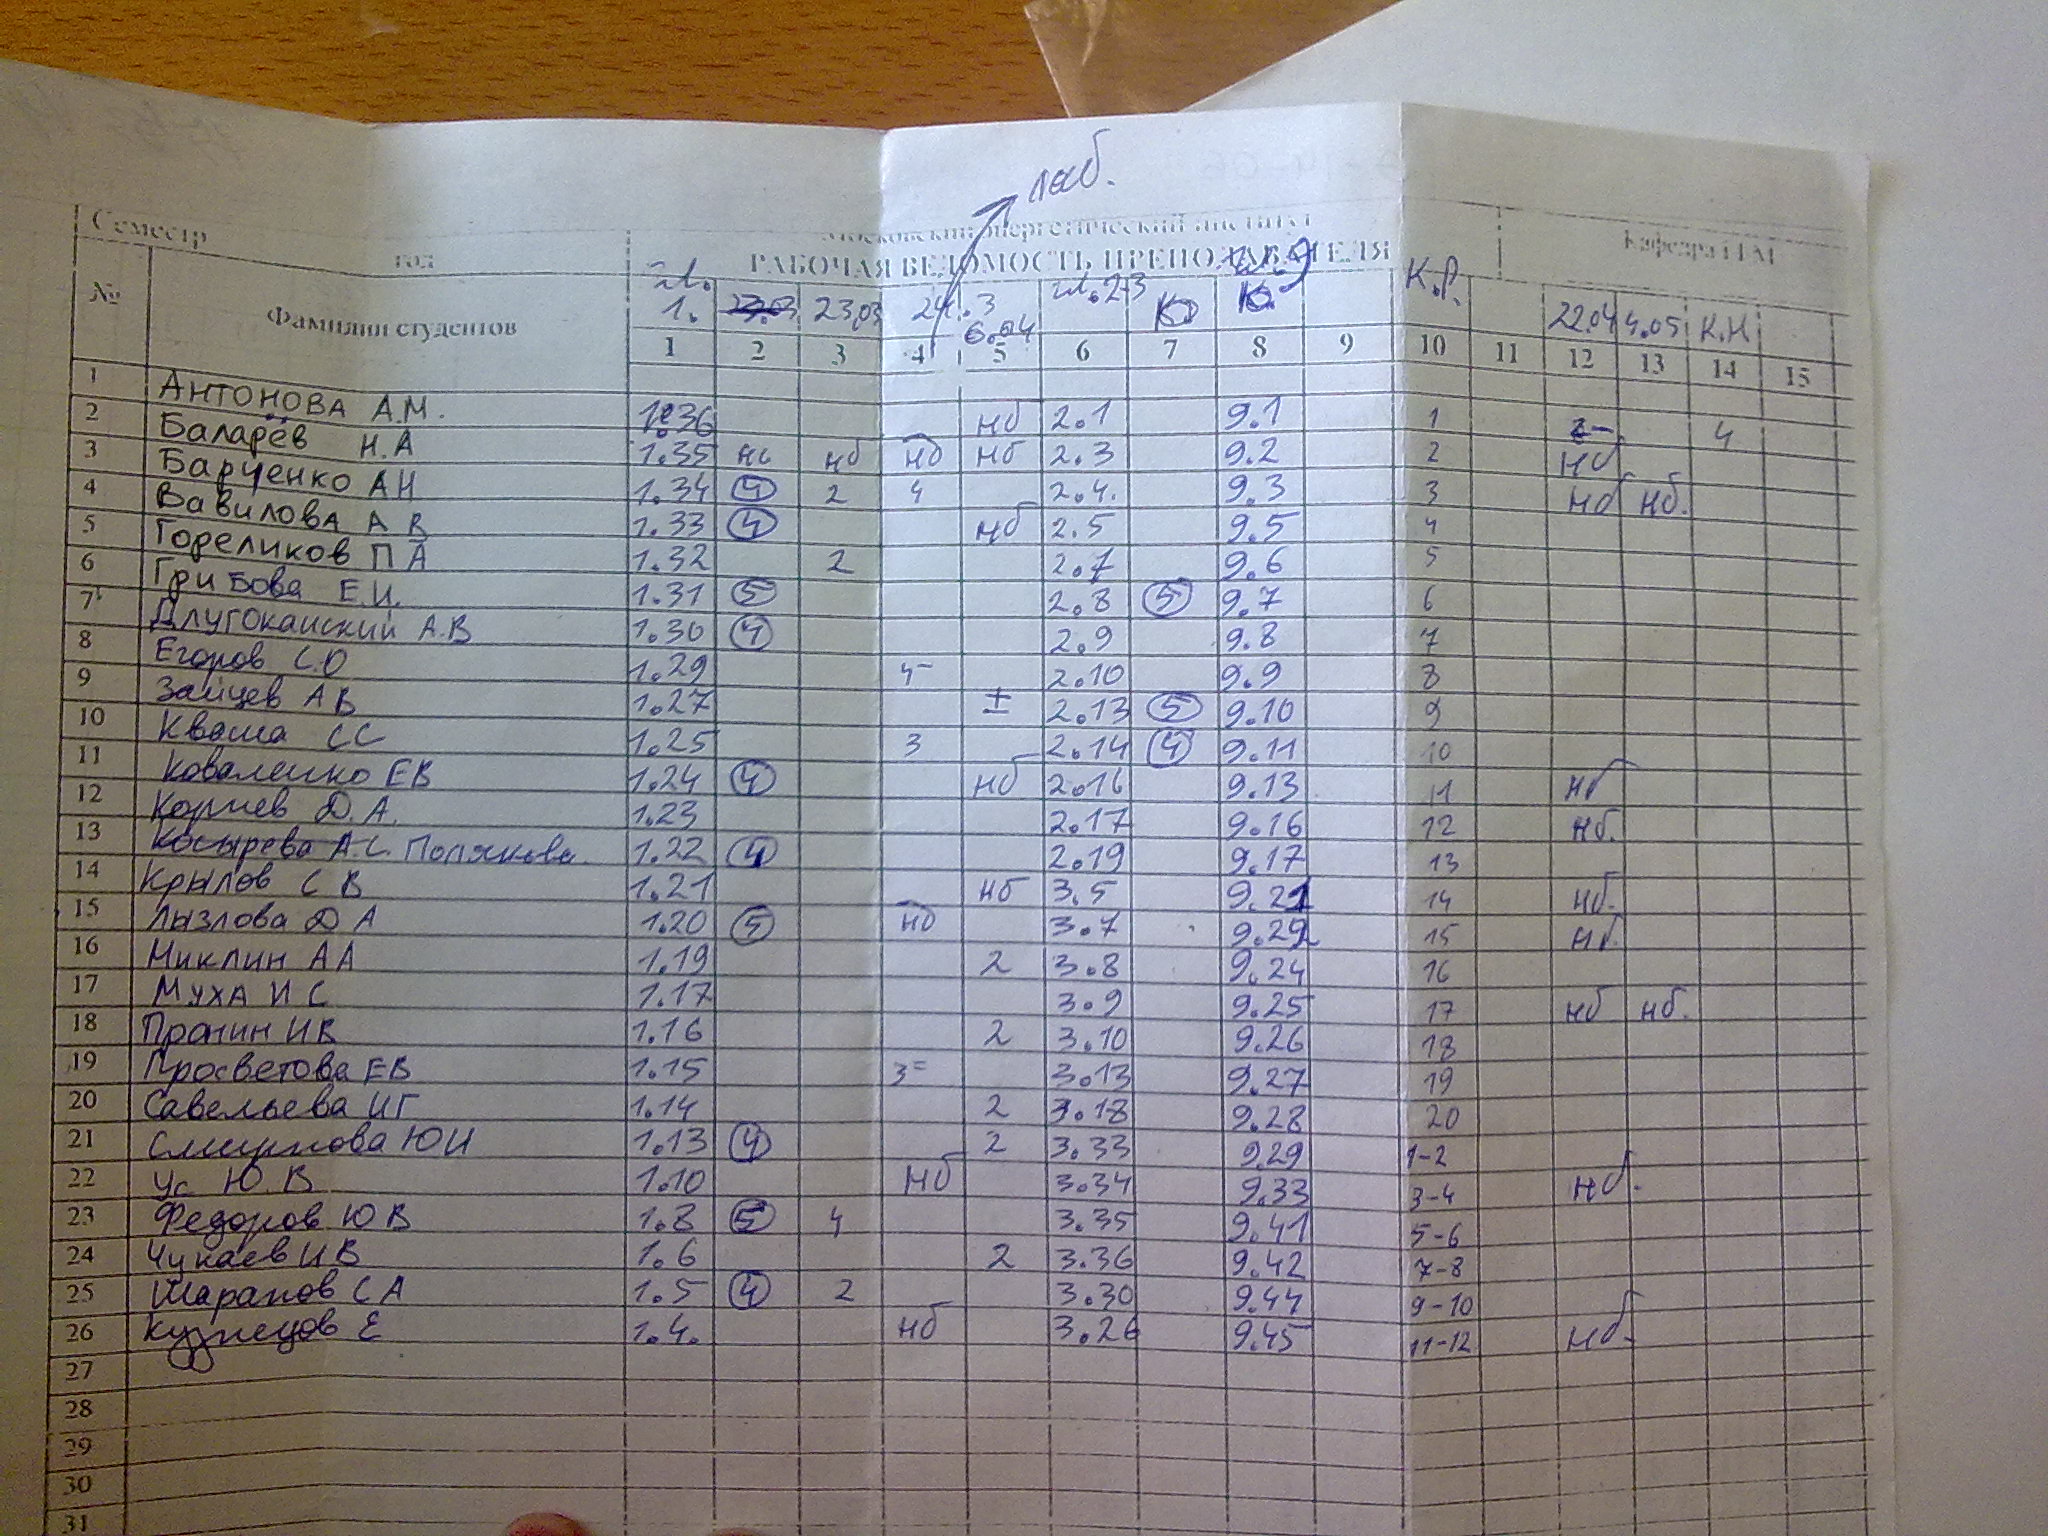 лаб.
Семестр год Московский энергетический институт Кафедра ПМ
РАБОЧАЯ ВЕДОМОСТЬ ПРЕПОДАВАТЕЛЯ
№ Фамилии студентов гл. 1. 23.03 23.03 24.3 6.04 гл. 2-3 К гл. 9 К. К.Р. 22.04 4.05 К.Н
1 2 3 4 5 6 7 8 9 10 11 12 13 14 15
1 АНТОНОВА А.М. 1.36 нб 2.1 9.1 1 4
2 Баларёв Н.А 1.35 нс нб нб нб 2.3 9.2 2 нб
3 Барченко АН 1.34 4 2 4 2.4. 9.3 3 нб нб.
4 Вавилова А В 1.33 4 нб 2.5 9.5 4
5 Гореликов П А 1.32 2 2.7 9.6 5
6 Грибова Е.И. 1.31 5 2.8 5 9.7 6
7 Длугоканский А.В 1.30 4 2.9 9.8 7
8 Егоров С.О 1.29 4- 2.10 9.9 8
9 Зайцев А В 1.27 ± 2.13 5 9.10 9
10 Кваша С С 1.25 3 2.14 4 9.11 10
11 Коваленко ЕВ 1.24 4 нб 2.16 9.13 11 нб
12 Корнев Д.А. 1.23 2.17 9.16 12 нб.
13 Косырева А.С. Полякова. 1.22 4 2.19 9.17 13
14 Крылов С В 1.21 нб 3.5 9.21 14 нб.
15 Лызлова Д А 1.20 5 нб 3.7 9.22 15 нб.
16 Миклин А А 1.19 2 3.8 9.24 16
17 Муха И С 1.17 3.9 9.25 17 нб нб.
18 Пронин И В 1.16 2 3.10 9.26 18
19 Просветова ЕВ 1.15 3= 3.13 9.27 19
20 Савельева И Г 1.14 2 3.18 9.28 20
21 Смирнова Ю И 1.13 4 2 3.33 9.29 1-2
22 Ус Ю.В 1.10 нб 3.34 9.33 3-4 нб.
23 Федоров Ю В 1.8 5 4 3.35 9.41 5-6
24 Чукаев И В 1.6 2 3.36 9.42 7-8
25 Шарапов С А 1.5 4 2 3.30 9.44 9-10
26 Кузнецов Е 1.4. нб 3.26 9.45 11-12 нб.
27
28
29
30
31